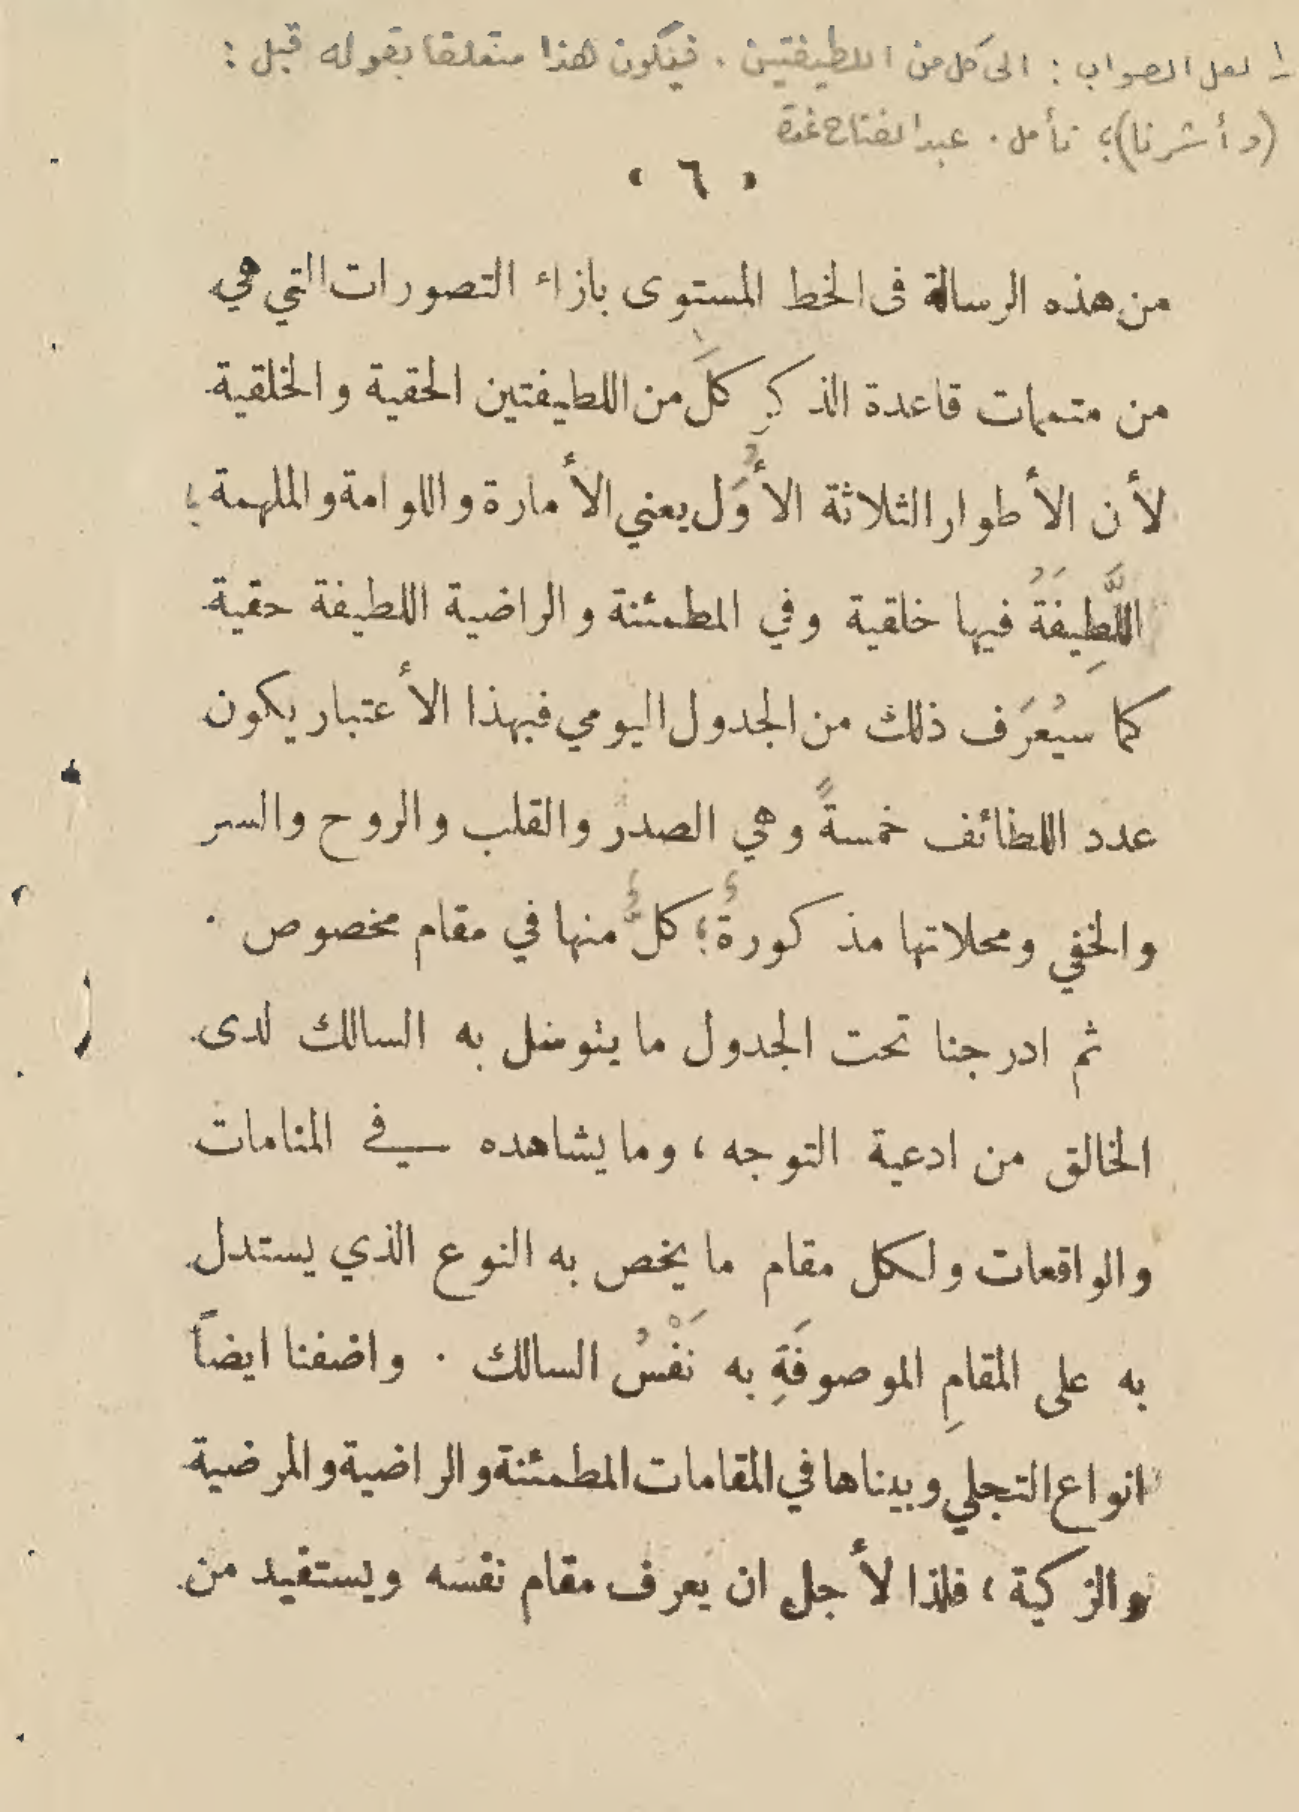 ١ لعل الصواب : الى كل من اللطيفتين . فيكون هذا متعلقا بقوله قبل :
(وأشرنا)؛ تأمل . عبد الفتاح غدة
« ٦ »
من هذه الرسالة فى الخط المستوى بازاء التصورات التي هي
من متممات قاعدة الذكرِ كلَ من اللطيفتين الحقية والخلقية
لأن الأطوار الثلاثة الأُوَل يعني الأمارة واللوامة والملهمة
اللَّطِيفَةُ فيها خلقية وفي المطمئنة والراضية اللطيفة حقية
كما سيُعرَف ذلك من الجدول اليومي فبهذا الأعتبار يكون
عدد اللطائف خمسةً وهي الصدر والقلب والروح والسر
والخفي ومحلاتها مذكورةٌ؛ كلٌّ منها في مقام مخصوص .
ثم ادرجنا تحت الجدول ما يتوسل به السالك لدى
الخالق من ادعية التوجه ، وما يشاهده في المنامات
والواقعات ولكل مقام ما يخص به النوع الذي يستدل
به على المقامِ الموصوفَةِ به نَفْسُ السالك . واضفنا ايضاً
انواع التجلي وبيناها في المقامات المطمئنة والراضية والمرضية
والزكية ، فلذا لأجل ان يعرف مقام نفسه ويستفيد من